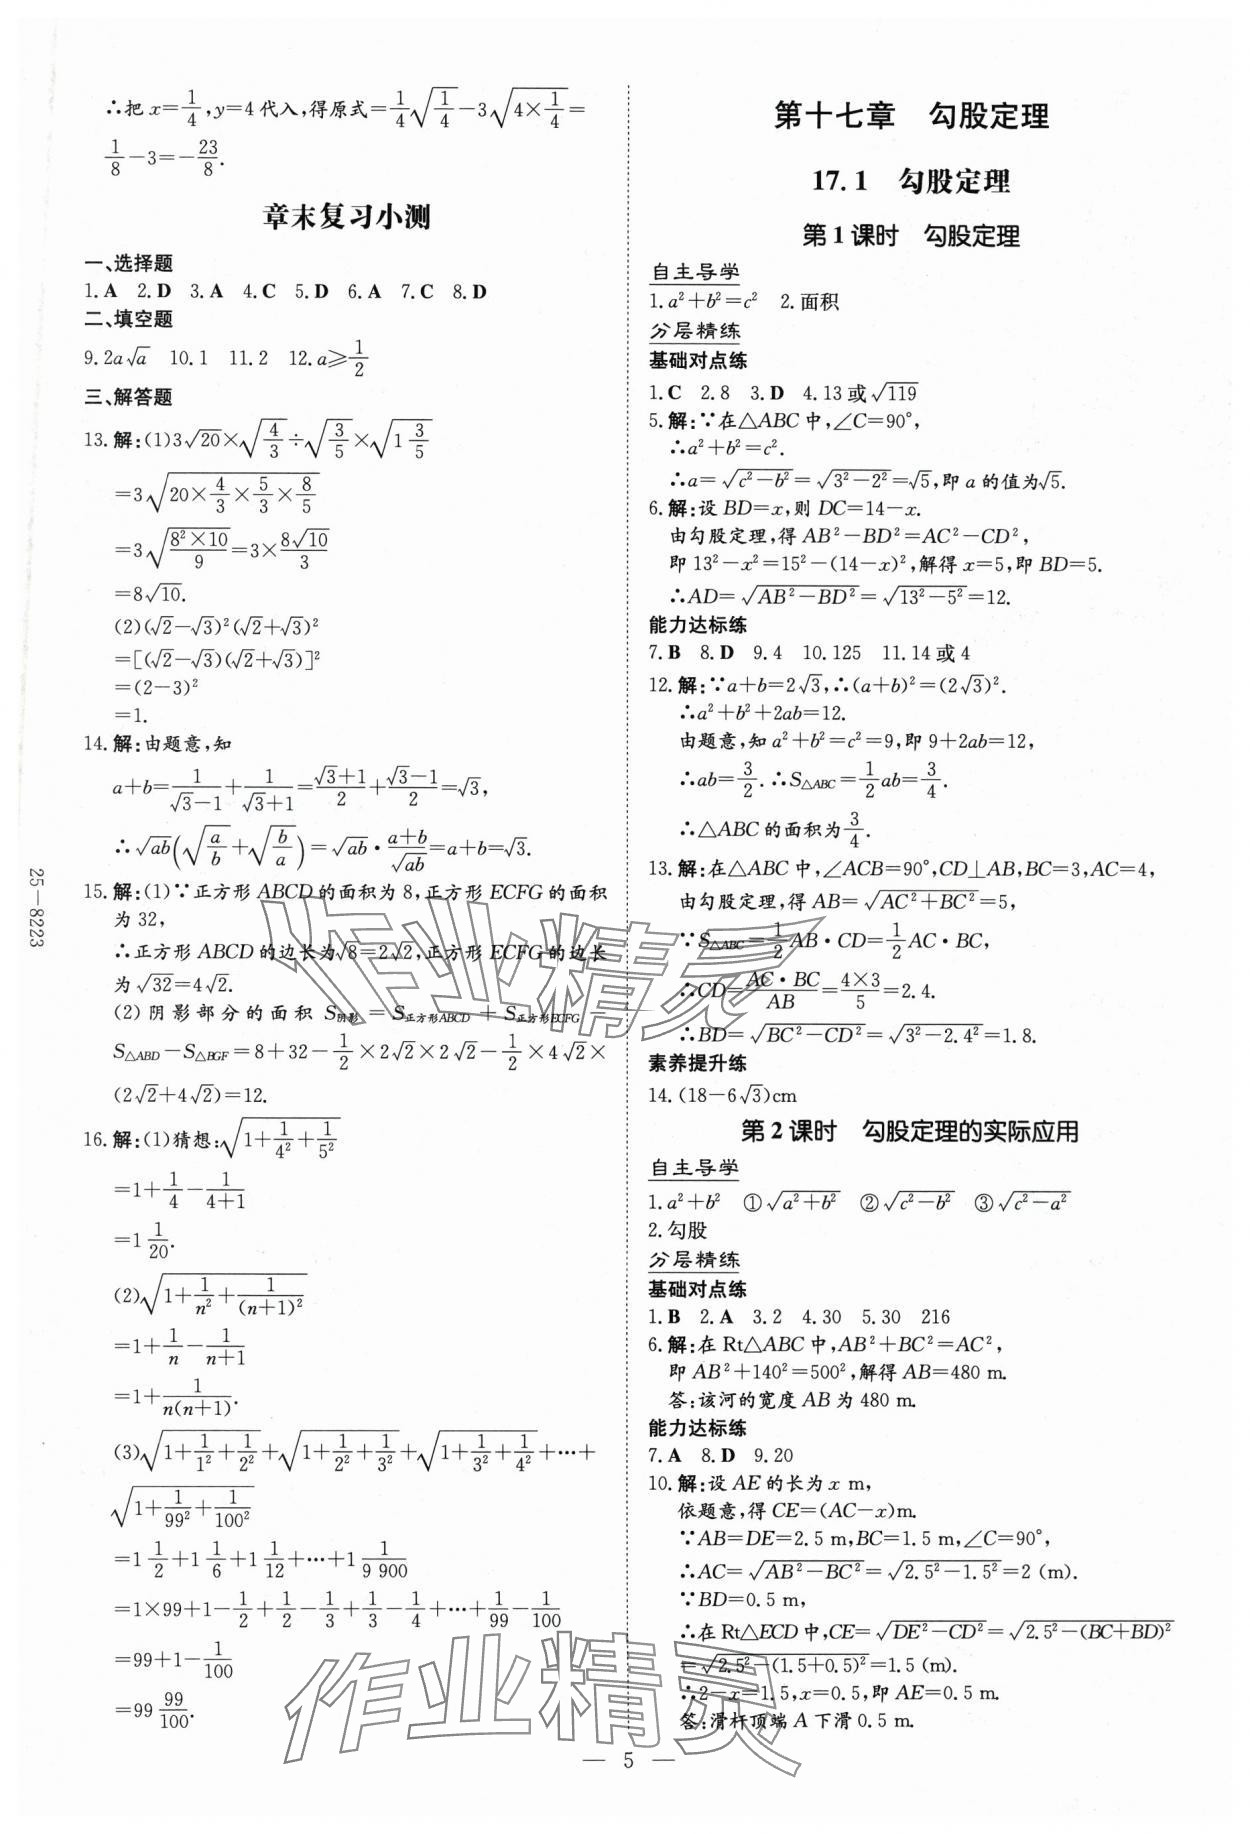 ∴把x=1/4,y=4代入,得原式=1/4√(1/4)-3√(4×1/4)=
1/8-3=-23/8.
章末复习小测
一、选择题
1.A 2.D 3.A 4.C 5.D 6.A 7.C 8.D
二、填空题
9.2a√a 10.1 11.2 12.a≥1/2
三、解答题
13.解:(1)3√20×√(4/3)÷√(3/5)×√(1 3/5)
=3√(20×4/3×5/3×8/5)
=3√((8²×10)/9)=3×(8√10)/3
=8√10.
(2)(√2-√3)²(√2+√3)²
=[(√2-√3)(√2+√3)]²
=(2-3)²
=1.
14.解:由题意,知
a+b=1/(√3-1)+1/(√3+1)=(√3+1)/2+(√3-1)/2=√3,
∴√ab(√(a/b)+√(b/a))=√ab·(a+b)/√ab=a+b=√3.
15.解:(1)∵正方形ABCD的面积为8,正方形ECFG的面积
为32,
∴正方形ABCD的边长为√8=2√2,正方形ECFG的边长
为√32=4√2.
(2)阴影部分的面积S阴影=S正方形ABCD+S正方形ECFG-
S△ABD-S△BGF=8+32-1/2×2√2×2√2-1/2×4√2×
(2√2+4√2)=12.
16.解:(1)猜想:√(1+1/4²+1/5²)
=1+1/4-1/(4+1)
=1 1/20.
(2)√(1+1/n²+1/(n+1)²)
=1+1/n-1/(n+1)
=1+1/(n(n+1)).
(3)√(1+1/1²+1/2²)+√(1+1/2²+1/3²)+√(1+1/3²+1/4²)+···+
√(1+1/99²+1/100²)
=1 1/2+1 1/6+1 1/12+···+1 1/9 900
=1×99+1-1/2+1/2-1/3+1/3-1/4+···+1/99-1/100
=99+1-1/100
=99 99/100.
25-8223
第十七章 勾股定理
17.1 勾股定理
第1课时 勾股定理
自主导学
1.a²+b²=c² 2.面积
分层精练
基础对点练
1.C 2.8 3.D 4.13或√119
5.解:∵在△ABC中,∠C=90°,
∴a²+b²=c².
∴a=√(c²-b²)=√(3²-2²)=√5,即a的值为√5.
6.解:设BD=x,则DC=14-x.
由勾股定理,得AB²-BD²=AC²-CD²,
即13²-x²=15²-(14-x)²,解得x=5,即BD=5.
∴AD=√(AB²-BD²)=√(13²-5²)=12.
能力达标练
7.B 8.D 9.4 10.125 11.14或4
12.解:∵a+b=2√3,∴(a+b)²=(2√3)².
∴a²+b²+2ab=12.
由题意,知a²+b²=c²=9,即9+2ab=12,
∴ab=3/2.∴S△ABC=1/2ab=3/4.
∴△ABC的面积为3/4.
13.解:在△ABC中,∠ACB=90°,CD⊥AB,BC=3,AC=4,
由勾股定理,得AB=√(AC²+BC²)=5,
∵S△ABC=1/2AB·CD=1/2AC·BC,
∴CD=(AC·BC)/AB=(4×3)/5=2.4.
∴BD=√(BC²-CD²)=√(3²-2.4²)=1.8.
素养提升练
14.(18-6√3)cm
第2课时 勾股定理的实际应用
自主导学
1.a²+b² ①√(a²+b²) ②√(c²-b²) ③√(c²-a²)
2.勾股
分层精练
基础对点练
1.B 2.A 3.2 4.30 5.30 216
6.解:在Rt△ABC中,AB²+BC²=AC²,
即AB²+140²=500²,解得AB=480 m.
答:该河的宽度AB为480 m.
能力达标练
7.A 8.D 9.20
10.解:设AE的长为x m,
依题意,得CE=(AC-x)m.
∵AB=DE=2.5 m,BC=1.5 m,∠C=90°,
∴AC=√(AB²-BC²)=√(2.5²-1.5²)=2 (m).
∵BD=0.5 m,
∴在Rt△ECD中,CE=√(DE²-CD²)=√(2.5²-(BC+BD)²)
=√(2.5²-(1.5+0.5)²)=1.5 (m).
∴2-x=1.5,x=0.5,即AE=0.5 m.
答:滑杆顶端A下滑0.5 m.
— 5 —
作业精灵
作业精灵